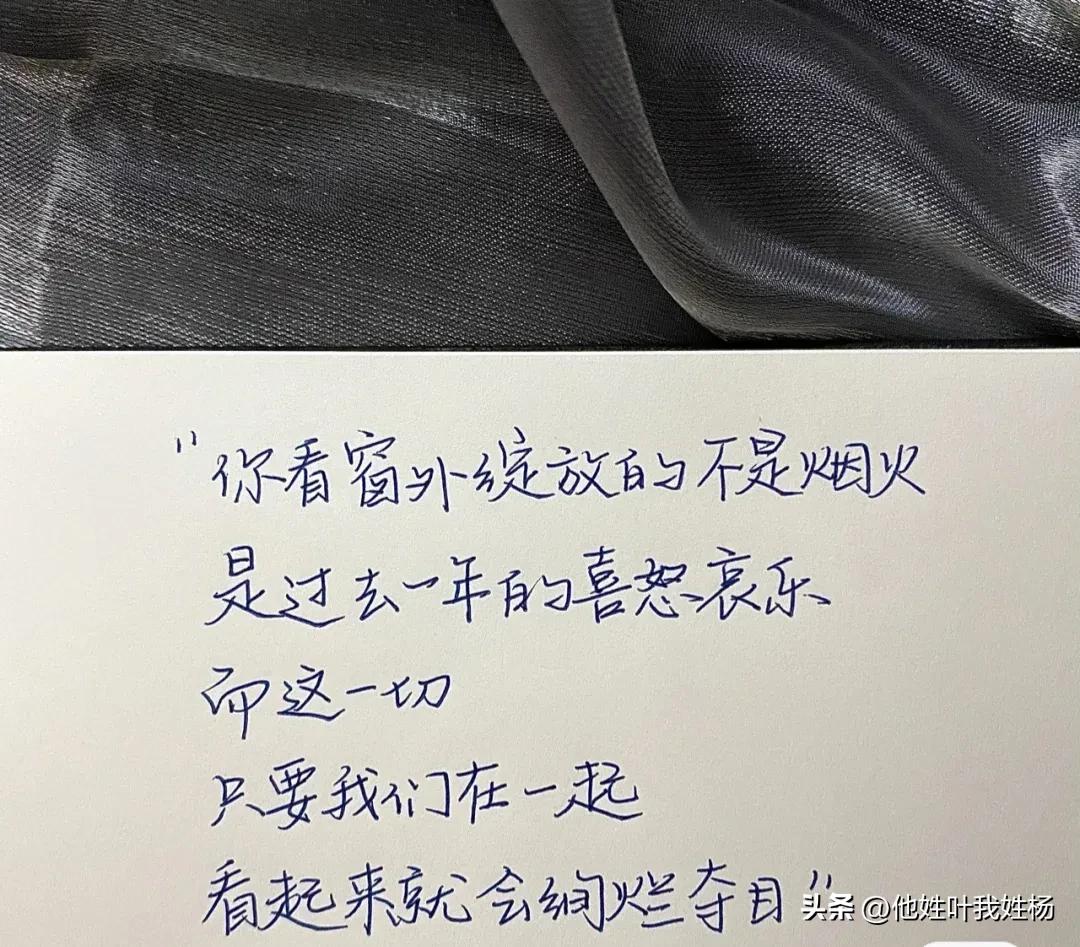 "你看窗外绽放的不是烟火
是过去一年的喜怒哀乐
而这一切
只要我们在一起
看起来就会绚烂夺目"
头条 @他姓叶我姓杨